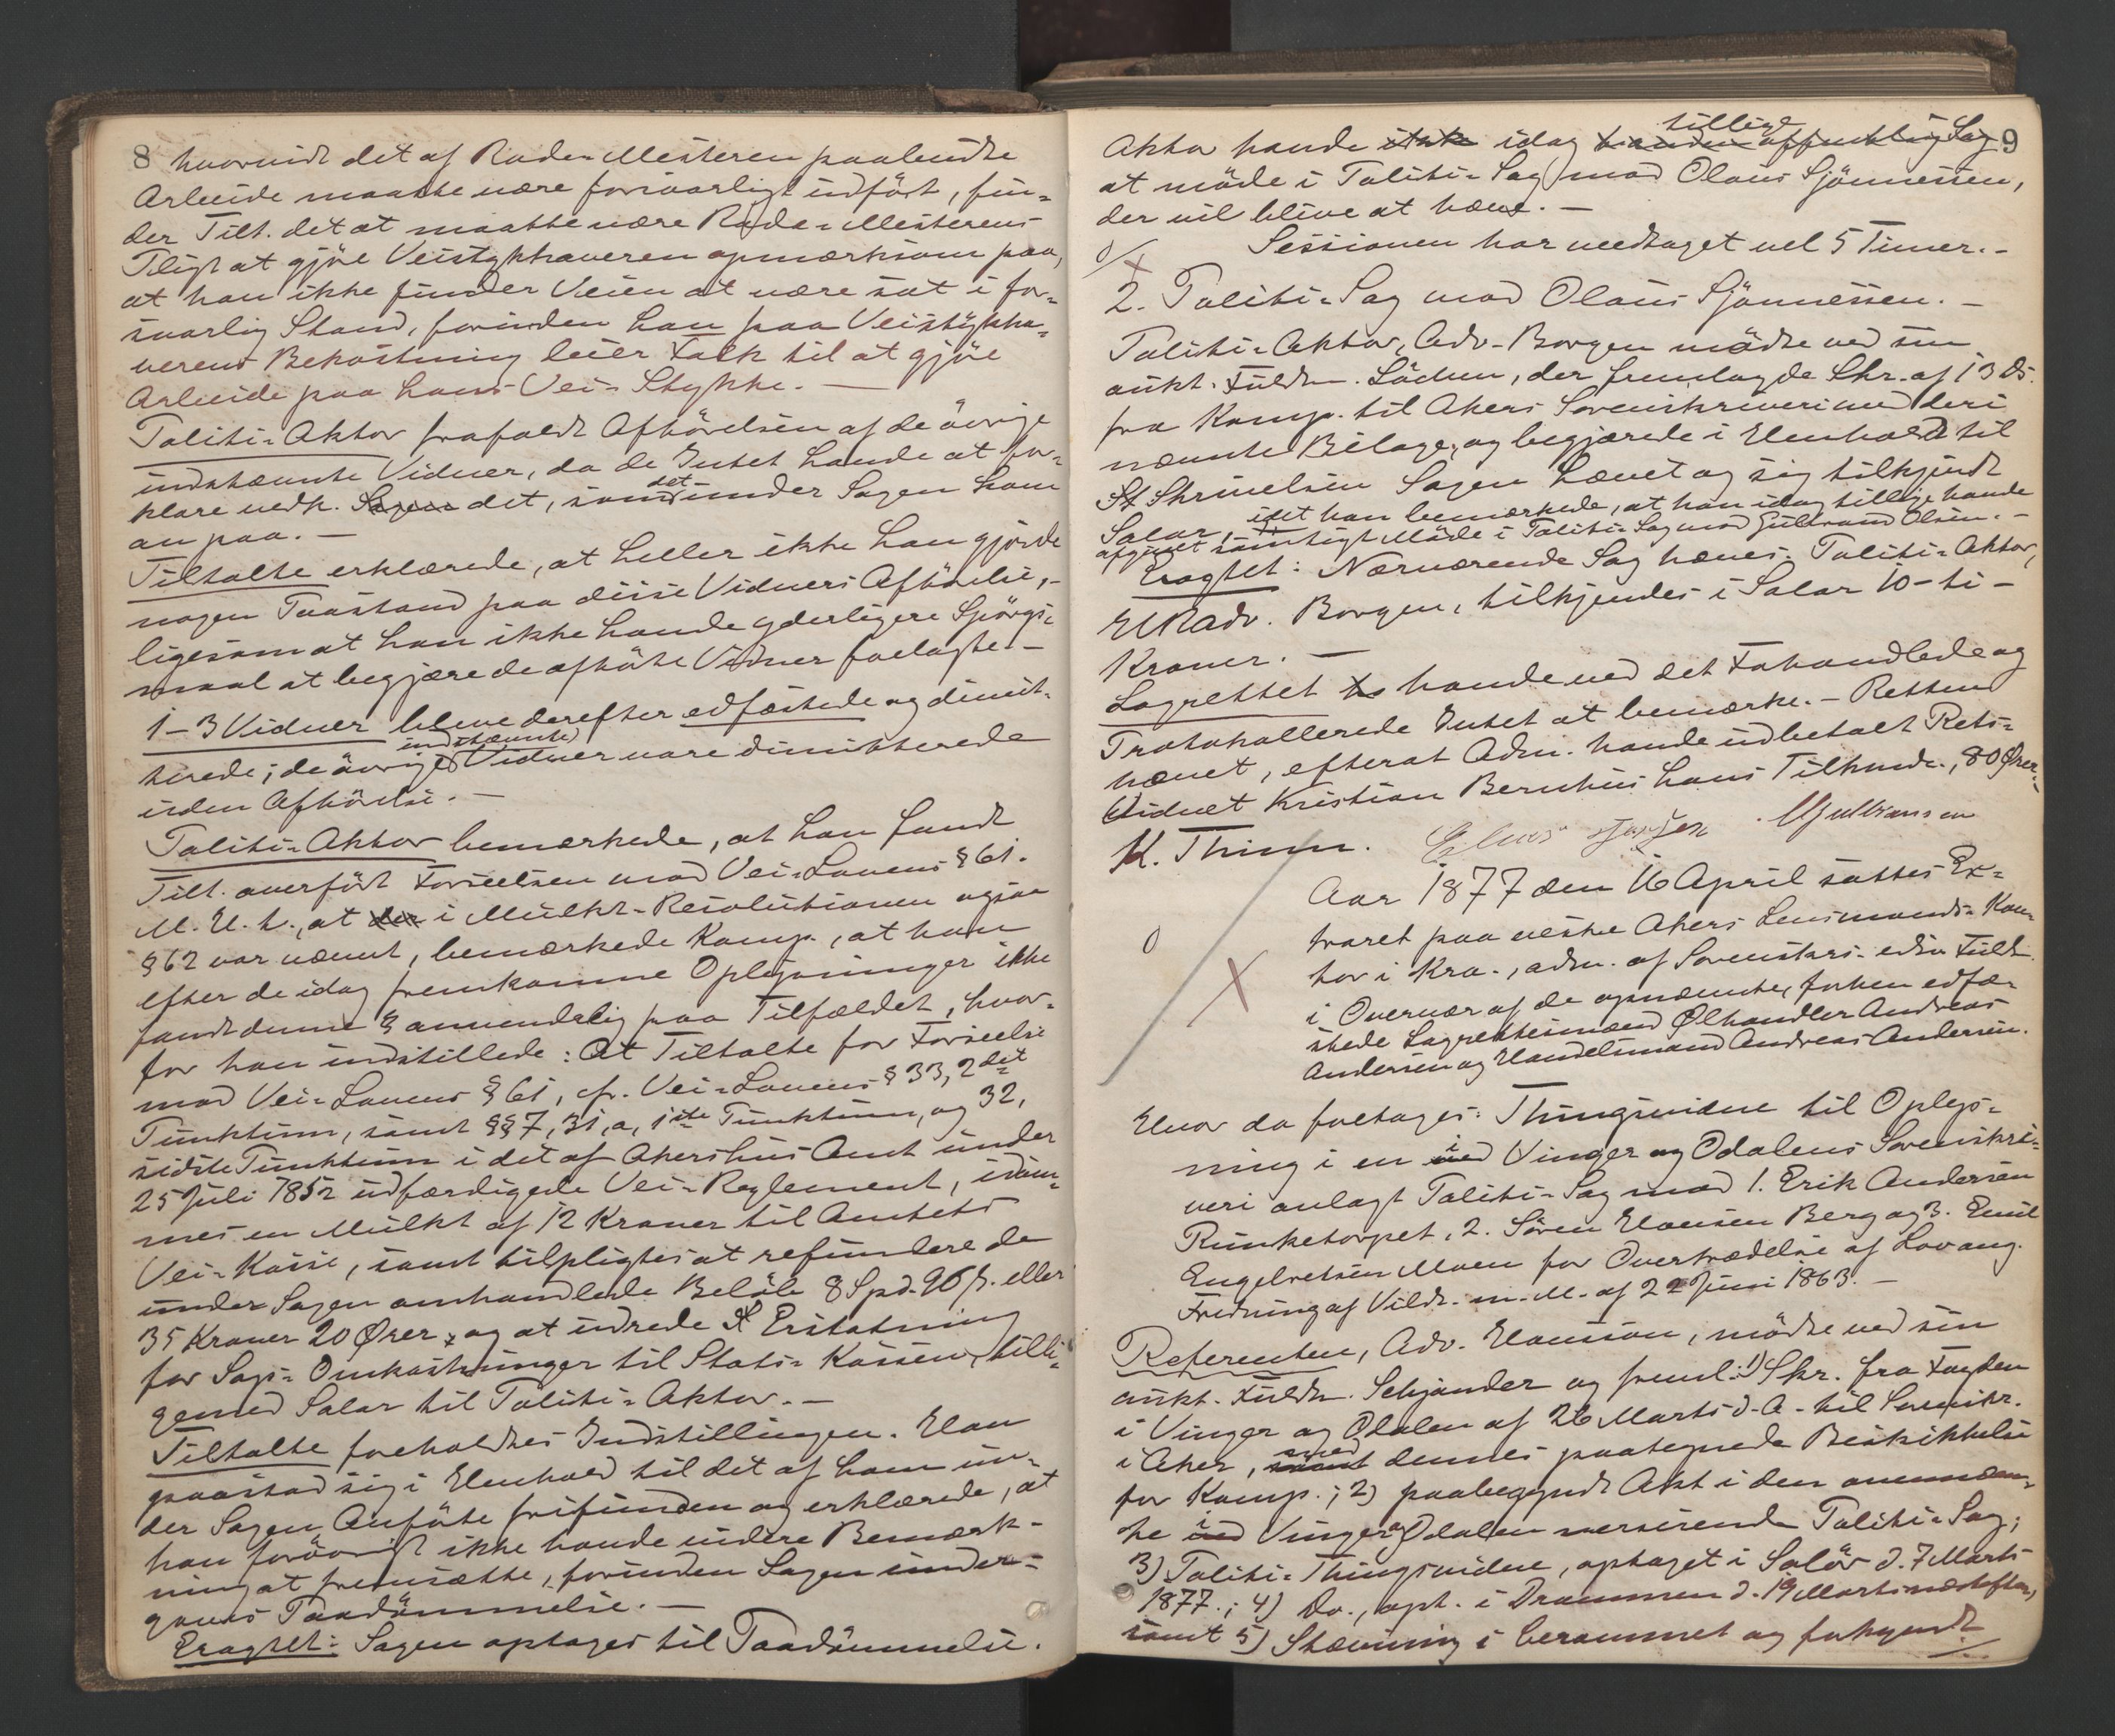 8
hvorvidt det af Rode-Mesteren paabudte
Arbeide maatte være forsvarligt udført, fin-
der Tilt. det at maatte være Rode-Mesterens
Pligt at gjöre Veistykhaveren opmærksom paa,
at han ikke finder Veien at være sat i for-
svarlig Stand, forinden han paa Veistykha-
verens Bekostning leier Folk til at gjöre
Arbeide paa hans Vei-Stykke. —
Politi-Aktor frafaldt Afhörelsen af de övrige
indstævnte Vidner, da de Intet havde at for-
klare vedk. Sagen det, som det under Sagen kom
an paa. —
Tiltalte erklærede, at heller ikke han gjorde
nogen Paastand paa disse Vidners Afhörelse,
ligesom at han ikke havde yderligere Spörgs-
maal at begjære de afhörte Vidner forelagte. —
1-3 Vidner bleve derefter edfæstede og dimit-
terede; de övrige indstævnte Vidner vare dimitterede
uden Afhörelse. —
Politi-Aktor bemærkede, at han fandt
Tilt. overfört Forseelsen mod Vei-Lovens § 61.
M. H. t., at der i Mulkt-Resolutionen ogsaa
§ 62 var nævnt, bemærkede Komp., at han
efter de idag fremkomne Oplysninger ikke
fandt denne § anvendelig paa Tilfældet, hvor-
for han indstillede: At Tiltalte for Forseelse
mod Vei-Lovens § 61, cfr. Vei-Lovens § 33, 2det
Punktum, samt §§ 7, 31, a, 1ste Punktum, og 32,
sidste Punktum i det af Akershus Amt under
25 Juli 1852 udfærdigede Vei-Reglement, idöm-
mes en Mulkt af 12 Kroner til Amtets
Vei-Kasse, samt tilpligtes at refundere de
under Sagen omhandlede Belöb 8 Spd. 96 s. eller
35 Kroner 20 Ører, og at udrede Erstatning
for Sags-Omkostninger til Stats-Kassen, tilli-
gemed Salar til Politi-Aktor. —
Tiltalte foreholdtes Indstillingen. Han
paastod sig i Henhold til det af ham un-
der Sagen Anförte frifunden og erklærede, at
han forövrigt ikke havde videre Bemærk-
ning at fremsætte, forinden Sagen under-
gaves Paadömmelse. —
Eragtet: Sagen optages til Paadömmelse.
9
Aktor havde idag tillige
at möde i Politi-Sag mod Olaus Sjönnesen,
der vil blive at hæve. —
Sessionen har medtaget vel 5 Timer. —
2. Politi-Sag mod Olaus Sjönnessen. —
Politi-Aktor, Adv. Borgen mödte ved sin
aukt. Fuldm. Löchen, der fremlagde Skr. af 13 ds.
fra Komp. til Akers Sorenskriveri med deri
nævnte Bilage, og begjærede i Henhold til
Skrivelsen Sagen hævet og sig tilkjendt
Salar, idet han bemærkede, at han idag tillige havde
afgivet samtidigt Möde i Politi-Sag mod Gulbrand Olsen. —
Eragtet: Nærværende Sag hæves. Politi-Aktor,
HRadv. Borgen, tilkjendes i Salar 10 - ti -
Kroner. —
Lagrettet havde ved det Forhandlede og
Protokollerede Intet at bemærke. — Retten
hævet, efterat Adm. havde udbetalt Rets-
vidnet Kristian Bernhus hans Tilkomde., 80 Ører.
K. Thinn.
Aar 1877 den 16 April sattes Ex-
traret paa vestre Akers Lensmands-Kon-
tor i Kra., adm. af Sorenskr. edsv. Fuldm.
i Overvær af de opnævnte, forhen edfæ-
stede Lagrettesmænd Ølhandler Andreas
Andersen og Handelsmand Andreas Andersen.
Hvor da foretages: Thingsvidne til Oplys-
ning i en i Vinger og Odalens Sorenskri-
veri anlagt Politi-Sag mod 1. Erik Andersen
Runketorpet, 2. Sören Hansen Berg og 3. Emil
Engelretsen Moen for Overtrædelse af Lov ang.
Fredning af Vildt m. M. af 22 Juni 1863. —
Referenten, Adv. Hansson, mödte ved sin
aukt. Fuldm. Schjander og freml.: 1) Skr. fra Fogden
i Vinger og Odalen af 26 Marts d. A. til Sorenskr.
i Aker, med dennes paategnede Beskikkelse
for Komp.; 2) paabegyndt Akt i den ovennævn-
te i Vinger og Odalen verserende Politi-Sag;
3) Politi-Thingsvidne, optaget i Solör d. 7 Marts
1877.; 4) Do., opt. i Drammen d. 19 Marts næstefter,
samt 5) Stævning i berammet og forkyndt